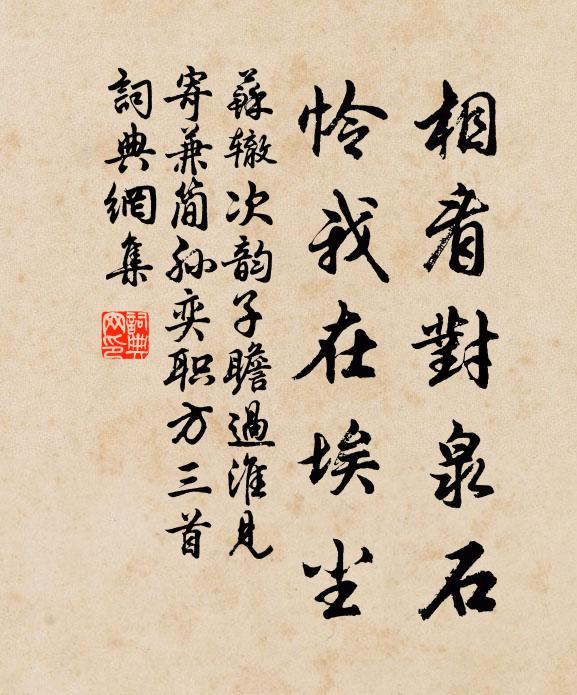 相看對泉石
怜我在埃尘
蘇辙次韵子瞻過淮見
寄兼簡孙奕职方三首
詞典網集
詞典
网印